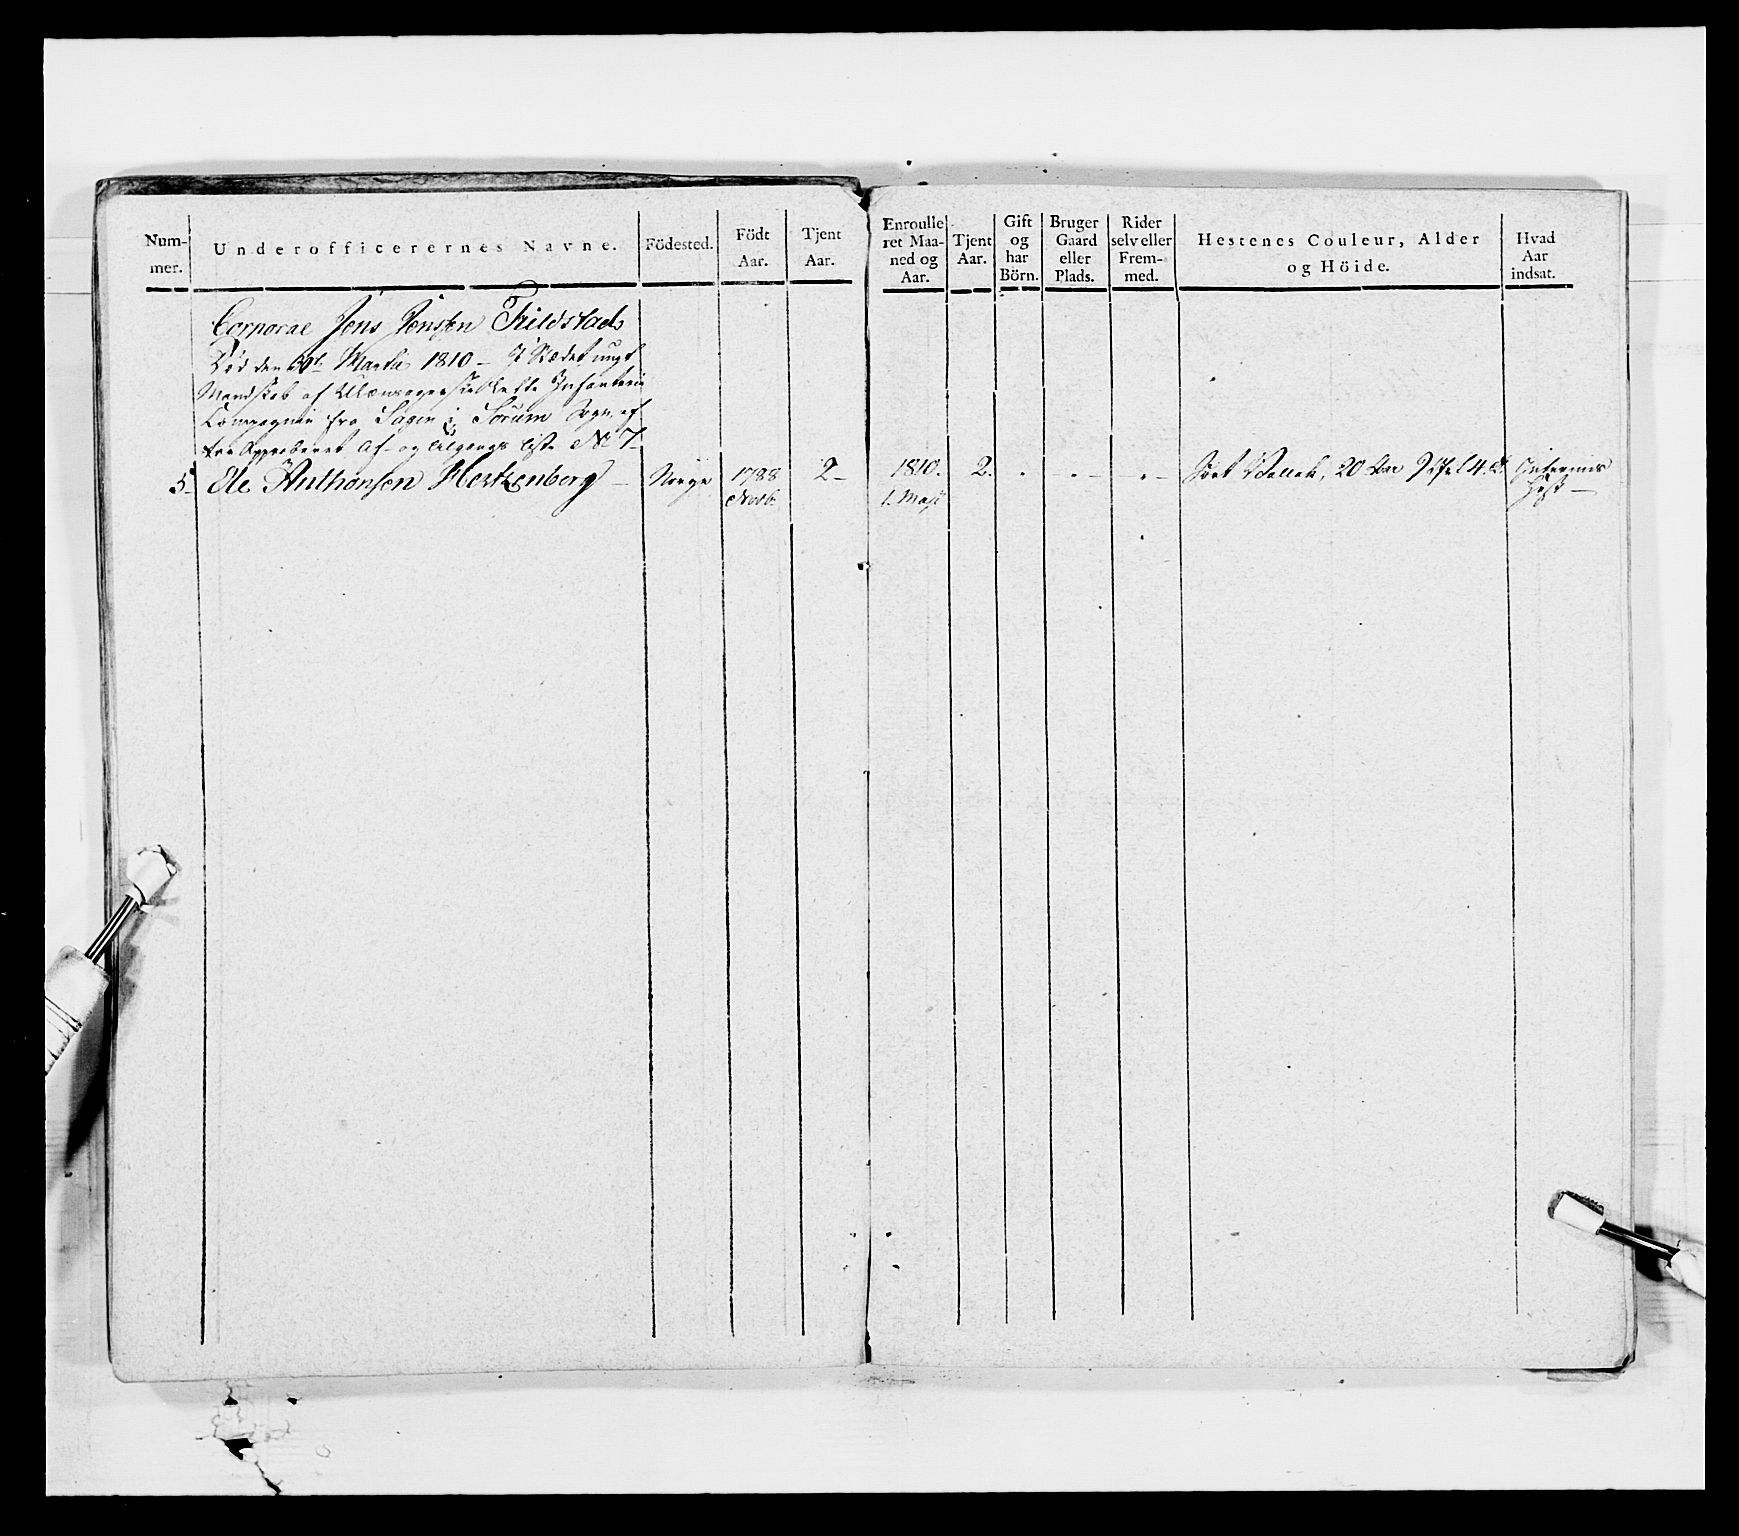 Num-
mer.
Underofficerernes Navne.
Födested.
Födt
Aar.
Tjent
Aar.
Enroulle
ret Maa-
ned og
Aar.
Tjent
Aar.
Gift
og
har
Börn.
Bruger
Gaard
eller
Plads.
Rider
selv eller
Frem-
med.
Hestenes Couleur, Alder
og Höide.
Hvad
Aar
indsat.
Corporal Jens Jensen Trildstad
Död den 30te Martii 1810 - I Stædet ungt
Mandskab af Infanterie
Compagnie fra Sagen i Sörum Sogn, ef
ter Approberet Af- og Tilgangs Liste No 7-
5- Ole Anthonsen Hertzenberg - Norge 1788 2- 1810. 2. - - - Sort Vallak, 20 Aar Interims
Novb. 1. Maji Hest -